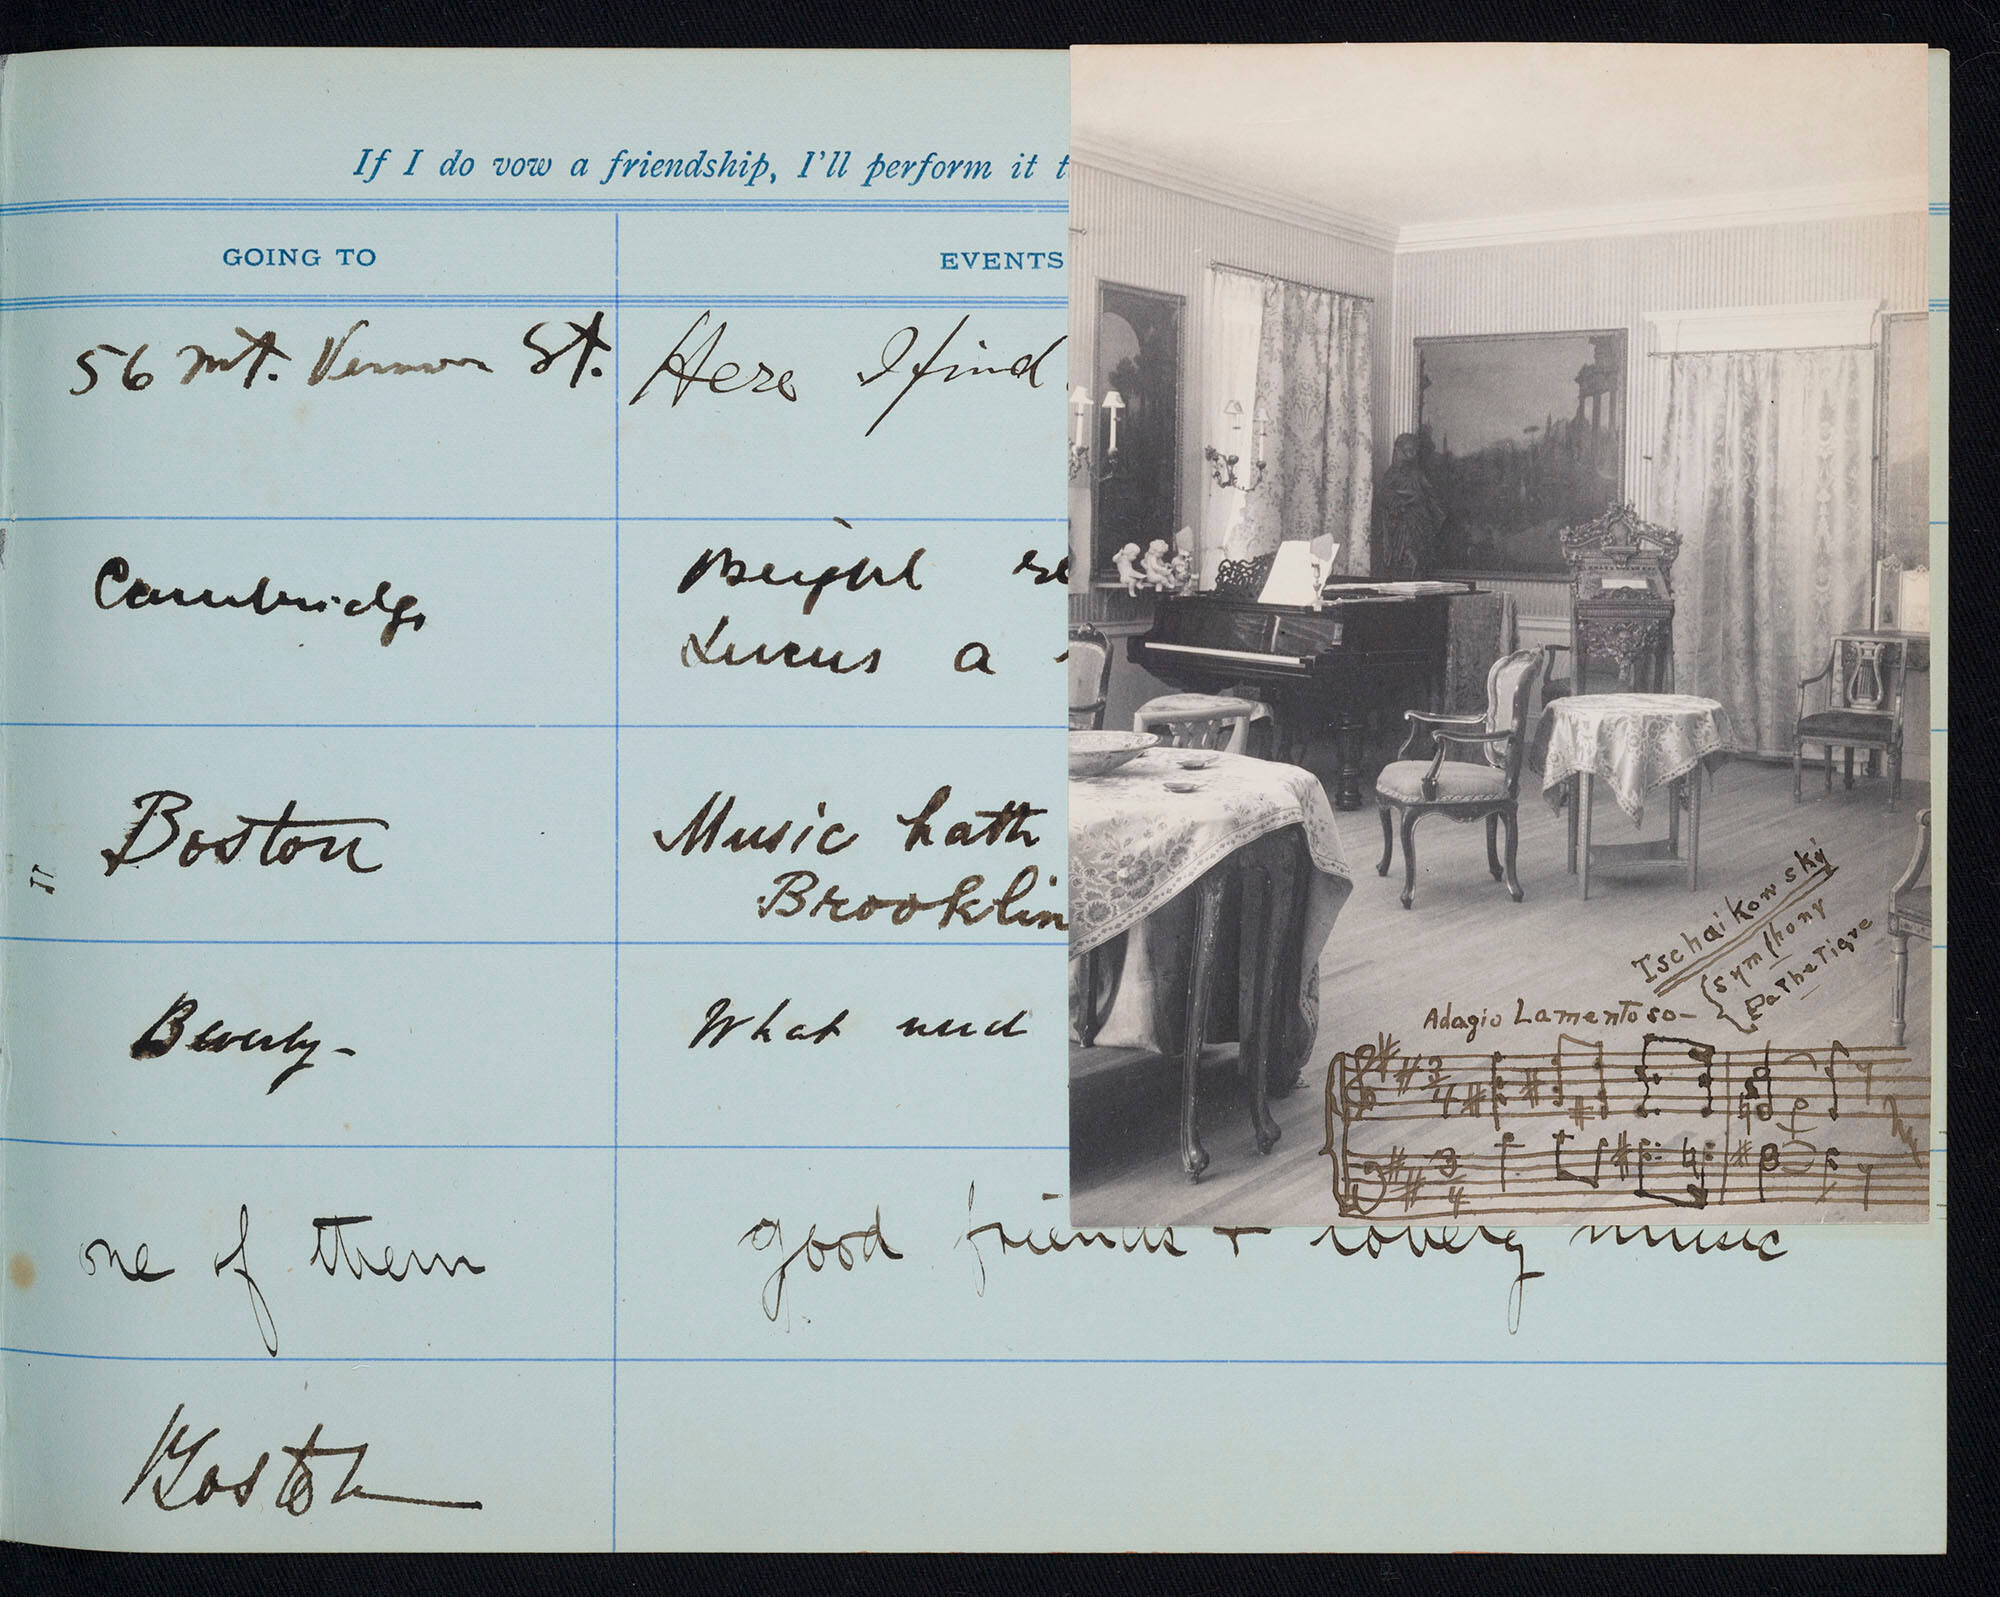 If I do vow a friendship, I'll perform it t
GOING TO
EVENTS
56 Mt. Vernon St.
Here I find
Cambridge
Bright
a
Boston
Music hath
Brooklin
Beverly-
What need
one of them
good friends + lovely music
Boston
Tschaikowsky
Symphony
Pathetique
Adagio Lamentoso-